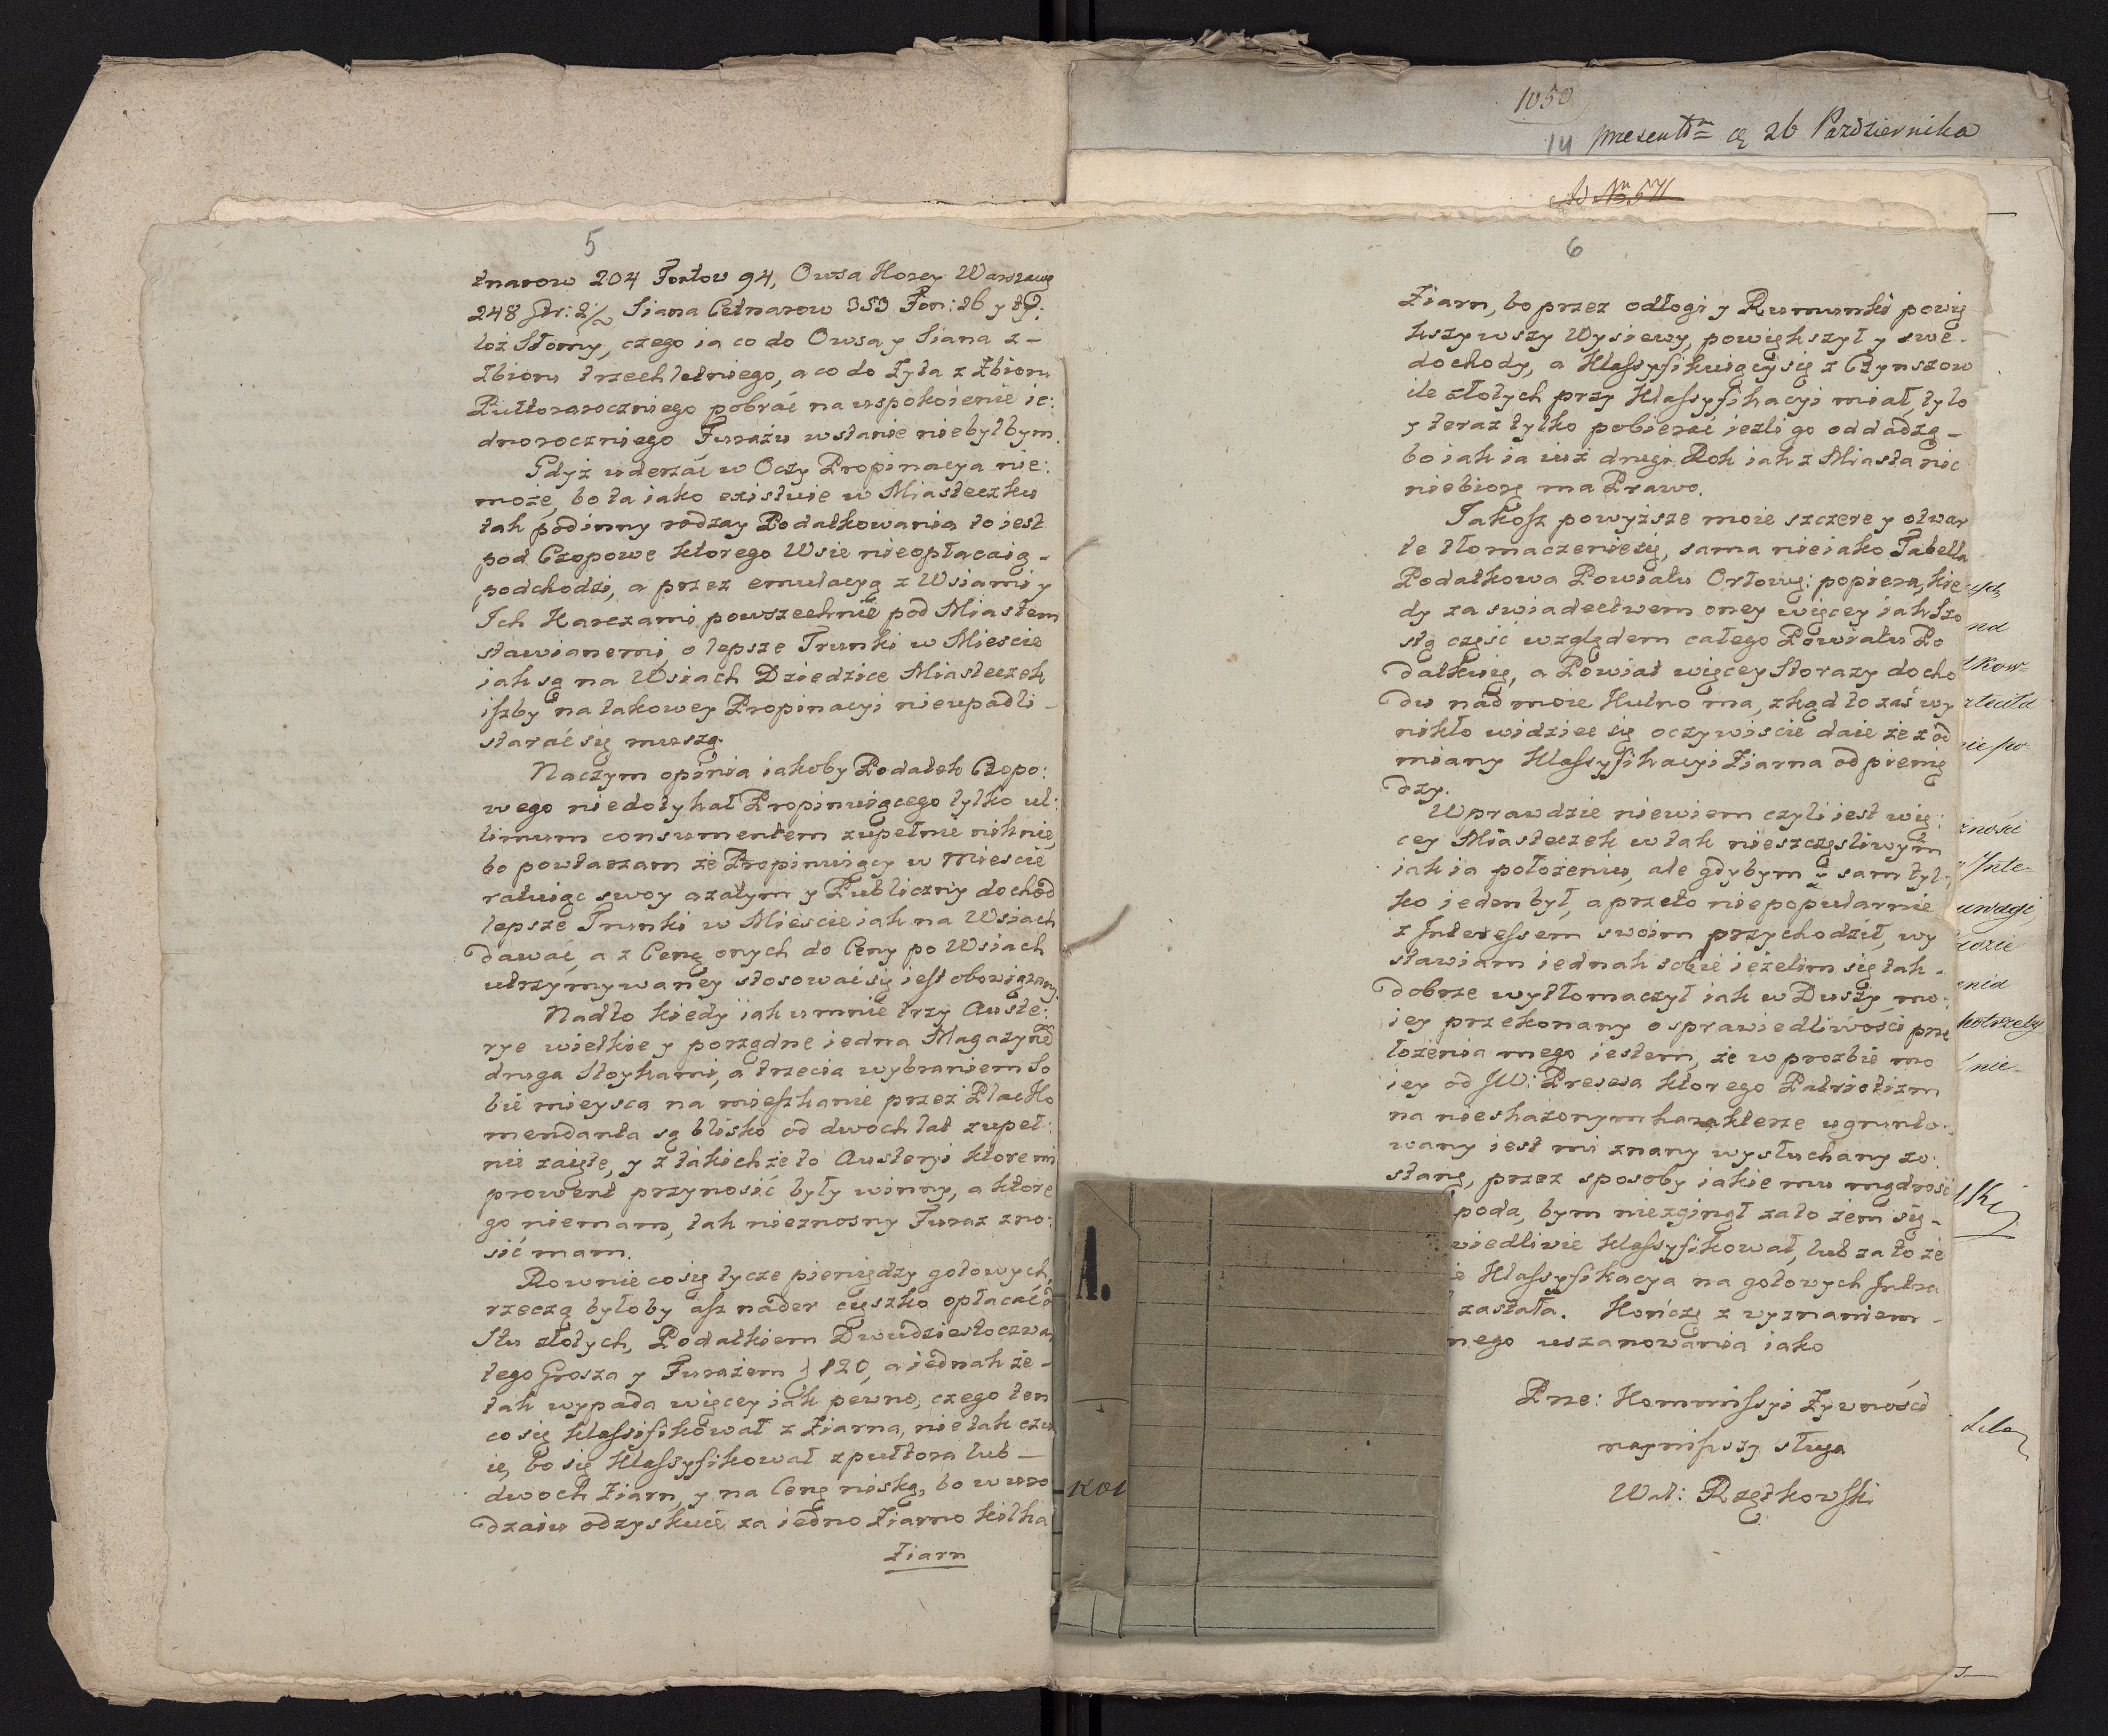 5
tnarow 204 Fontow 94, Owsa Korcy Warszaws
248 Gr: 2½ Siana Cetnarow 353 Fon: 26 y ty:
loż Słomy, czego ia co do Owsa y Siana z-
Zbioru trzechletniego, a co do Żyta z Zbioru
Pułtoraroczniego pobrać na uspokoienie ie:
dnoroczniego Furażu wstanie niebyłbym.
Gdyż uderzać w Oczy Propinacya nie:
może, bo ta iako existuie w Miasteczku
tak pod inny rodzay Podatkowania to iest
pod Czopowe ktorego Wsie nieopłacaią-
podchodzi, a przez emulacyą z Wsiami y
Ich Karczami powszechnie pod Miastem
stawianemi o lepsze Trunki w Miescie
iak są na Wsiach Dziedzice Miasteczek
iszby na takowey Propinacyi nieupadli-
starać się muszą.
Naczym opinia iakoby Podatek Czopo:
wego niedotykał Propinuiącego tylko ul:
timum consumentem zupełnie niknie,
bo powtarzam że Propinuiący w Miescie
ratuiąc swoy azatym y Publiczny dochod
lepsze Trunki w Miescie iak na Wsiach
dawać, a z Ceną onych do Ceny po Wsiach
utrzymywaney stosować się iest obowiązany.
Nadto kiedy iak u mnie trzy Auste:
rye wielkie y porządne iedna Magazynẽ
druga Stoykami, a trzecia wybraniem So
bie mieysca na mieszkanie przez Plac Ko
mendanta są blisko od dwoch lat zupeł:
nie zaięte, y z takichże to Austeryi ktore mi
prowent przynosić były winny, a ktore
go niemam, tak nieznosny Furaz zno:
sić mam.
Rownie co się tycze pieniędzy gotowych,
rzeczą byłoby asz nader cięszko opłacać od
Stu złotych, Podatkiem Dwudziestoczwar
tego Grosza y Furażem 120, a iednak że-
tak wypada więcey iak pewno, czego ten
co się klassifikował z Ziarna, nie tak czu
ie, bo się Klassyfikował z pułtora lub-
dwoch Ziarn, y na Cenę niską, bo w uro
dzaiu odzyskuie za iedno Ziarno kilka
Ziarn
1050
14 presentm d 26 Pazdziernika
Ad Nr 571
6
Ziarn, bo przez odłogi y Rumunki powię
kszywszy Wysiewy, powiększył y swe-
dochody, a Klassyfikuiący się z Czynszow
ile złotych przy Klassyfikacyi miał, tylo
y teraz tylko pobierać iezli go oddadzą-
bo iak ia iuż drugi Rok iak z Miasta nic
niebiorę ma Prawo.
Jakosz powyższe moie szczere y otwar
te tłomaczenie się, sama nieiako Tabella
Podatkowa Powiatu Orłows: popiera, kie
dy za swiadectwem oney więcey iak Szo
stą część względem całego Powiatu Po
datkuię, a Powiat więcey Storazy docho
du nad moie Kutno ma, zkąd to zaś wy
nikło widzieć się oczywiscie daie że z od
miany Klassyfikacyi Ziarna od pienię
dzy.
Wprawdzie niewiem czyli iest wię:
cey Miasteczek w tak nieszczęsliwym
iak ia położeniu, ale gdybym y sam tyl-
ko ieden był, a przeto niepopularnie
z Interessem swoim przychodził, wy
stawiam iednak sobie ieżelim się tak-
dobrze wytłomaczył iak w Duszy mo:
iey przekonany o sprawiedliwości prze
łożenia mego iestem, że w prozbie mo
iey od JW: Presesa ktorego Patriotizm
na nieskażonym karakterze ugrunto-
wany iest mi znany wysłuchany zo:
stanę, przez sposoby iakie mu mądrość
poda, bym niezginął zato żem się-
wiedliwie klassyfikował, lub za to że
Klassyfikacya na gotowych Intra
zastała. Kończę z wyznaniem-
nego uszanowania iako
Prze: Kommissyi Żywności
naynisszy sługa
Wal: Rzętkowski
A.